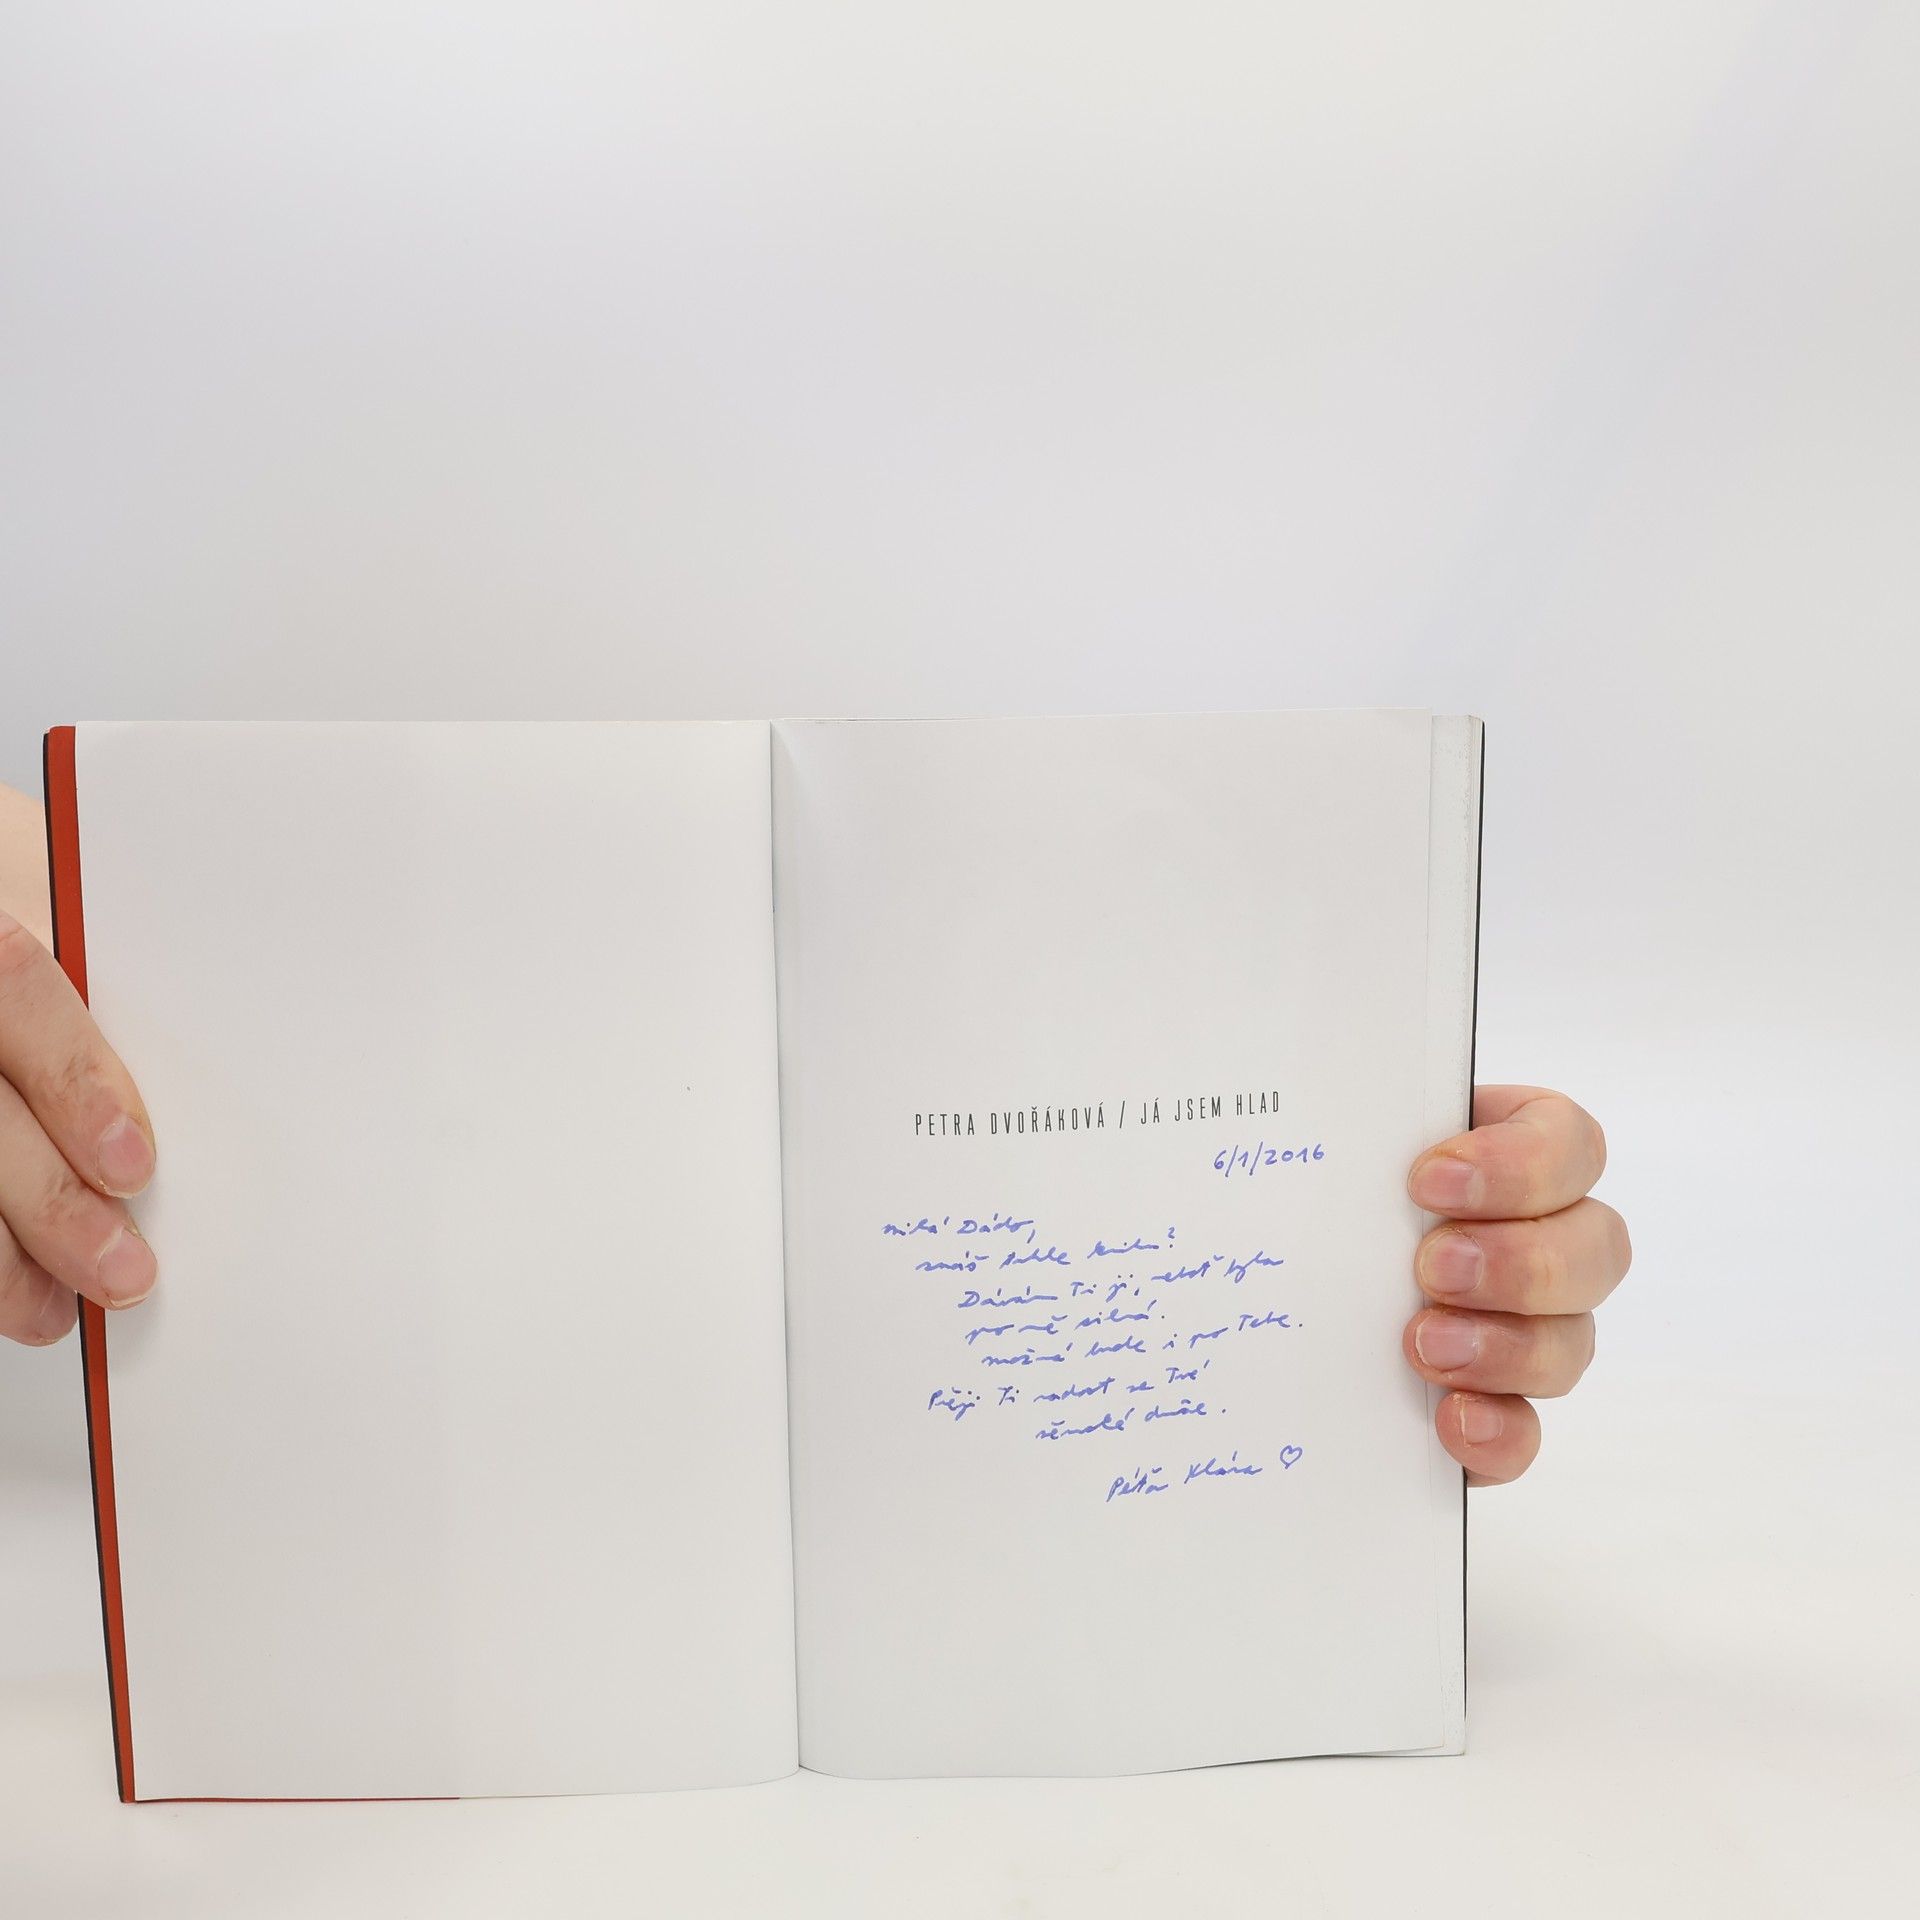 PETRA DVOŘÁKOVÁ / JÁ JSEM HLAD
6/1/2016
milá Dádo,
znáš tuhle knihu?
Dávám Ti ji, neboť byla
pro mě silná.
možná bude i pro Tebe.
Přeji Ti radost ze Tvé
ženské duše.
Péťa Klára ♡